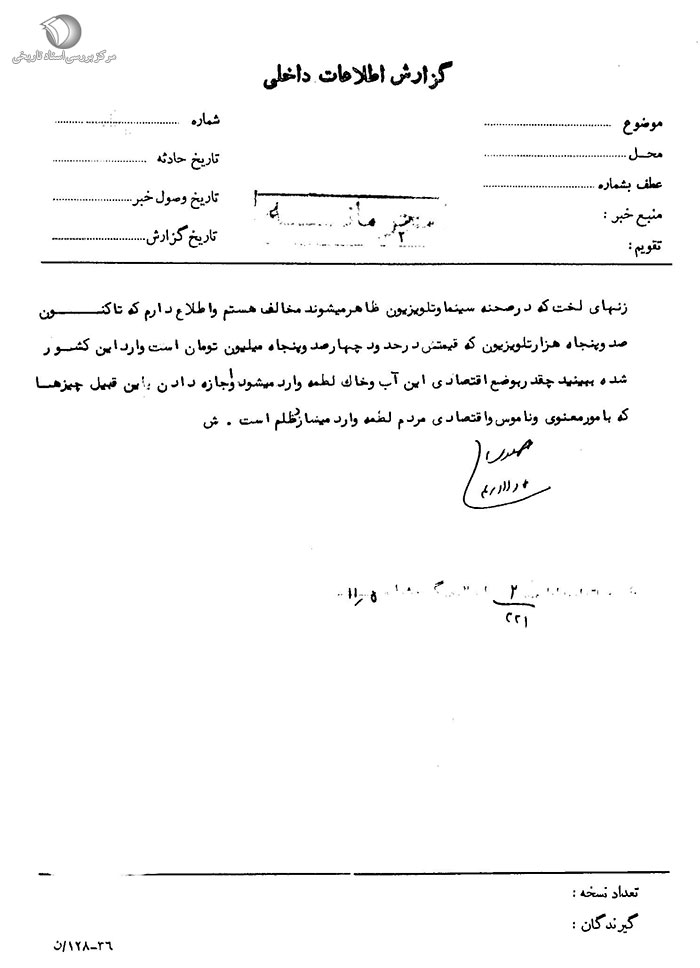 مرکز بررسی اسناد تاریخی
گزارش اطلاعات داخلی
موضوع
محل
عطف بشماره
منبع خبر :
تقویم :
شماره
تاریخ حادثه
تاریخ وصول خبر
تاریخ گزارش
۲
زنهای لخت که درصحنه سینما وتلویزیون ظاهرمیشوند مخالف هستم واطلاع دارم که تاکنون
صد وپنجاه هزارتلویزیون که قیمتش درحدود چهارصد وپنجاه میلیون تومان است وارد این کشور
شده ببینید چقدربوضع اقتصادی این آب وخاك لطمه وارد میشود واجازه دادن باین قبیل چیزها
که بامورمعنوی وناموس واقتصادی مردم لطمه وارد میسازد ظلم است . ش
۲
۲۲۱
تعداد نسخه :
گیرندگان :
۳۶-۱۲۸/ن